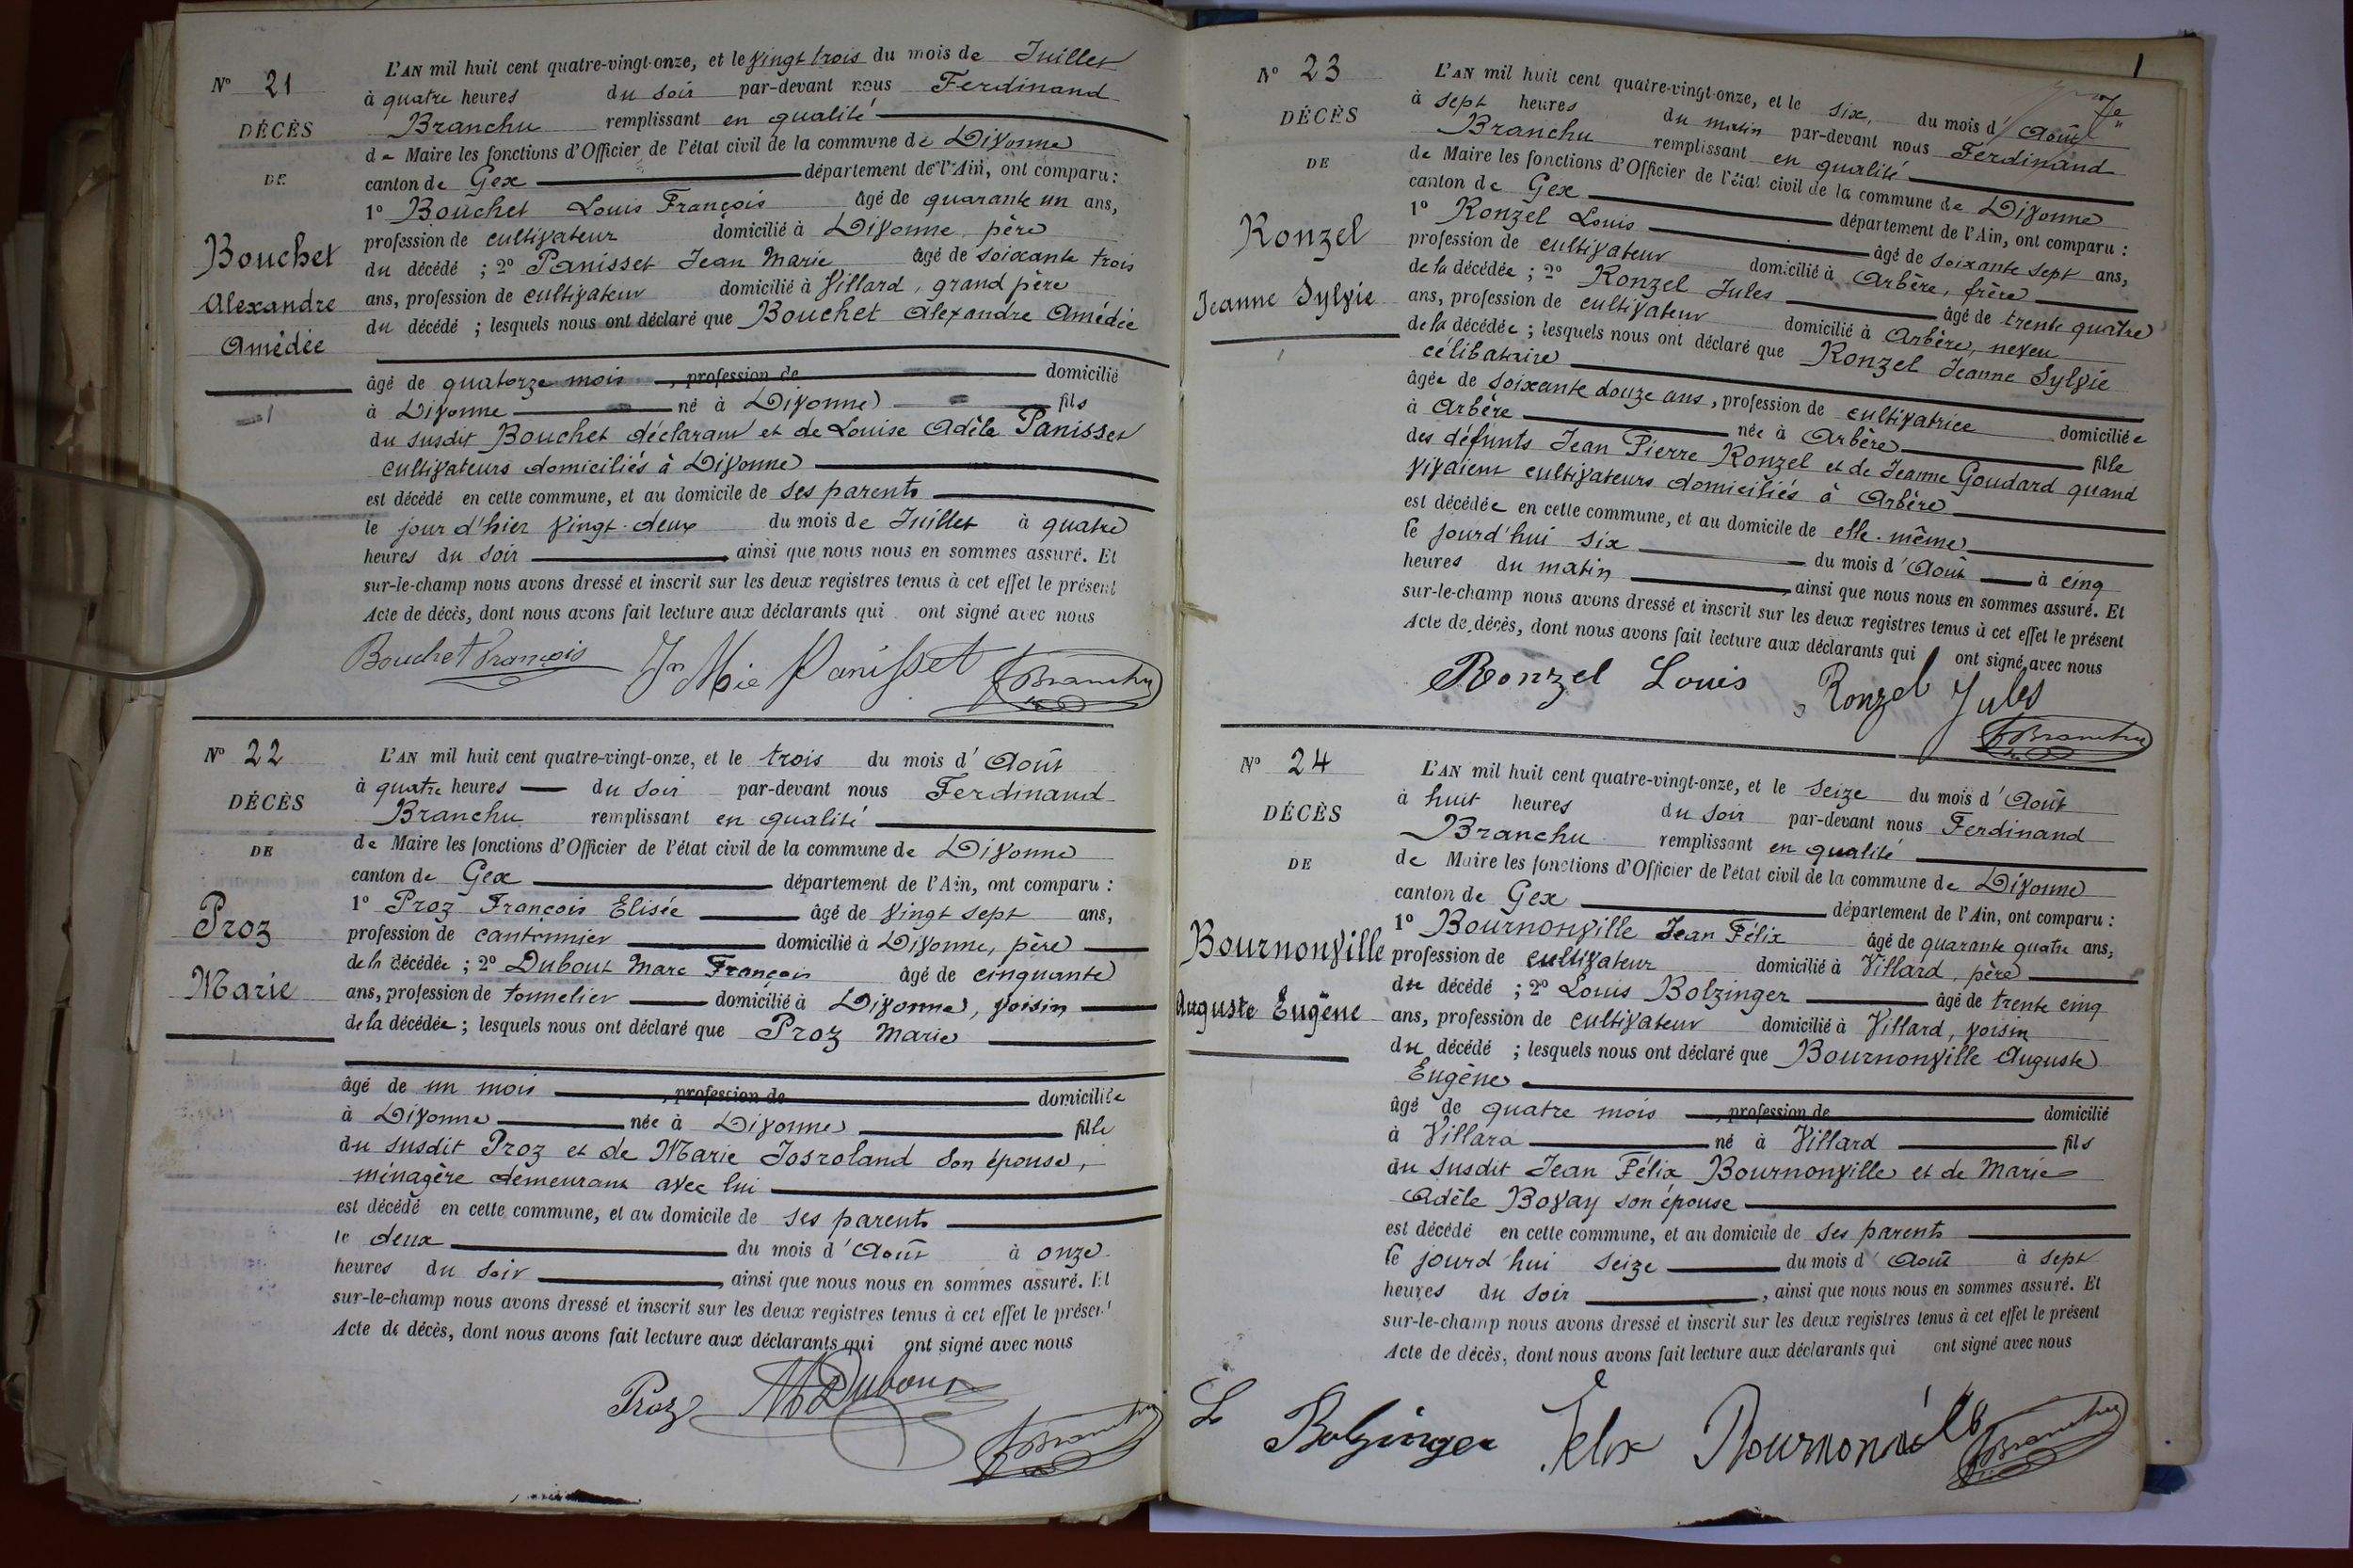 N° 21
DÉCÈS
DE
Bouchet
Alexandre
Amédée
L'AN mil huit cent quatre-vingt-onze, et le vingt trois du mois de Juillet
à quatre heures du soir par-devant nous Ferdinand
Branchu remplissant en qualité
de Maire les fonctions d'Officier de l'état civil de la commune de Divonne
canton de Gex département de l'Ain, ont comparu :
1° Bouchet Louis François âgé de quarante un ans,
profession de cultivateur domicilié à Divonne, père
du décédé ; 2° Panisset Jean Marie âgé de soixante trois
ans, profession de cultivateur domicilié à Villard, grand père
du décédé ; lesquels nous ont déclaré que Bouchet Alexandre Amédée
âgé de quatorze mois , profession de domicilié
à Divonne né à Divonne fils
du susdit Bouchet déclarant et de Louise Adèle Panisset
cultivateurs domiciliés à Divonne
est décédé en cette commune, et au domicile de ses parents
le jour d'hier vingt-deux du mois de Juillet à quatre
heures du soir , ainsi que nous nous en sommes assuré. Et
sur-le-champ nous avons dressé et inscrit sur les deux registres tenus à cet effet le présent
Acte de décès, dont nous avons fait lecture aux déclarants qui ont signé avec nous
Bouchet François Jn Mie Panisset FBranchu
N° 22
DÉCÈS
DE
Proz
Marie
L'AN mil huit cent quatre-vingt-onze, et le trois du mois d'Août
à quatre heures du soir par-devant nous Ferdinand
Branchu remplissant en qualité
de Maire les fonctions d'Officier de l'état civil de la commune de Divonne
canton de Gex département de l'Ain, ont comparu :
1° Proz François Elisée âgé de vingt sept ans,
profession de cantonnier domicilié à Divonne, père
de la décédée ; 2° Dubout Marc François âgé de cinquante
ans, profession de tonnelier domicilié à Divonne, voisin
de la décédée ; lesquels nous ont déclaré que Proz Marie
âgé de un mois , profession de domiciliée
à Divonne née à Divonne fille
du susdit Proz et de Marie Josroland son épouse,
ménagère demeurant avec lui
est décédé en cette commune, et au domicile de ses parents
le deux du mois d'Août à onze
heures du soir , ainsi que nous nous en sommes assuré. Et
sur-le-champ nous avons dressé et inscrit sur les deux registres tenus à cet effet le présent
Acte de décès, dont nous avons fait lecture aux déclarants qui ont signé avec nous
Proz MDubout FBranchu
1
7e
N° 23
DÉCÈS
DE
Ronzel
Jeanne Sylvie
L'AN mil huit cent quatre-vingt-onze, et le six, du mois d'Août
à sept heures du matin par-devant nous Ferdinand
Branchu remplissant en qualité
de Maire les fonctions d'Officier de l'état civil de la commune de Divonne
canton de Gex département de l'Ain, ont comparu :
1° Ronzel Louis âgé de soixante sept ans,
profession de cultivateur domicilié à Arbère, frère
de la décédée ; 2° Ronzel Jules âgé de trente quatre
ans, profession de cultivateur domicilié à Arbère, neveu
de la décédée ; lesquels nous ont déclaré que Ronzel Jeanne Sylvie
célibataire
âgée de soixante douze ans, profession de cultivatrice domiciliée
à Arbère née à Arbère fille
des défunts Jean Pierre Ronzel et de Jeanne Goudard quand
vivaient cultivateurs domiciliés à Arbère
est décédée en cette commune, et au domicile de elle-même
le jourd'hui six du mois d'Août à cinq
heures du matin , ainsi que nous nous en sommes assuré. Et
sur-le-champ nous avons dressé et inscrit sur les deux registres tenus à cet effet le présent
Acte de décès, dont nous avons fait lecture aux déclarants qui ont signé avec nous
Ronzel Louis Ronzel Jules
FBranchu
N° 24
DÉCÈS
DE
Bournonville
Auguste Eugène
L'AN mil huit cent quatre-vingt-onze, et le seize du mois d'Août
à huit heures du soir par-devant nous Ferdinand
Branchu remplissant en qualité
de Maire les fonctions d'Officier de l'état civil de la commune de Divonne
canton de Gex département de l'Ain, ont comparu :
1° Bournonville Jean Félix âgé de quarante quatre ans,
profession de cultivateur domicilié à Villard, père
du décédé ; 2° Louis Bolzinger âgé de trente cinq
ans, profession de cultivateur domicilié à Villard, voisin
du décédé ; lesquels nous ont déclaré que Bournonville Auguste
Eugène
âgé de quatre mois , profession de domicilié
à Villard né à Villard fils
du susdit Jean Félix Bournonville et de Marie
Adèle Bovay son épouse
est décédé en cette commune, et au domicile de ses parents
le jourd'hui seize du mois d'Août à sept
heures du soir , ainsi que nous nous en sommes assuré. Et
sur-le-champ nous avons dressé et inscrit sur les deux registres tenus à cet effet le présent
Acte de décès, dont nous avons fait lecture aux déclarants qui ont signé avec nous
L Bolzinger Félix Bournonville FBranchu